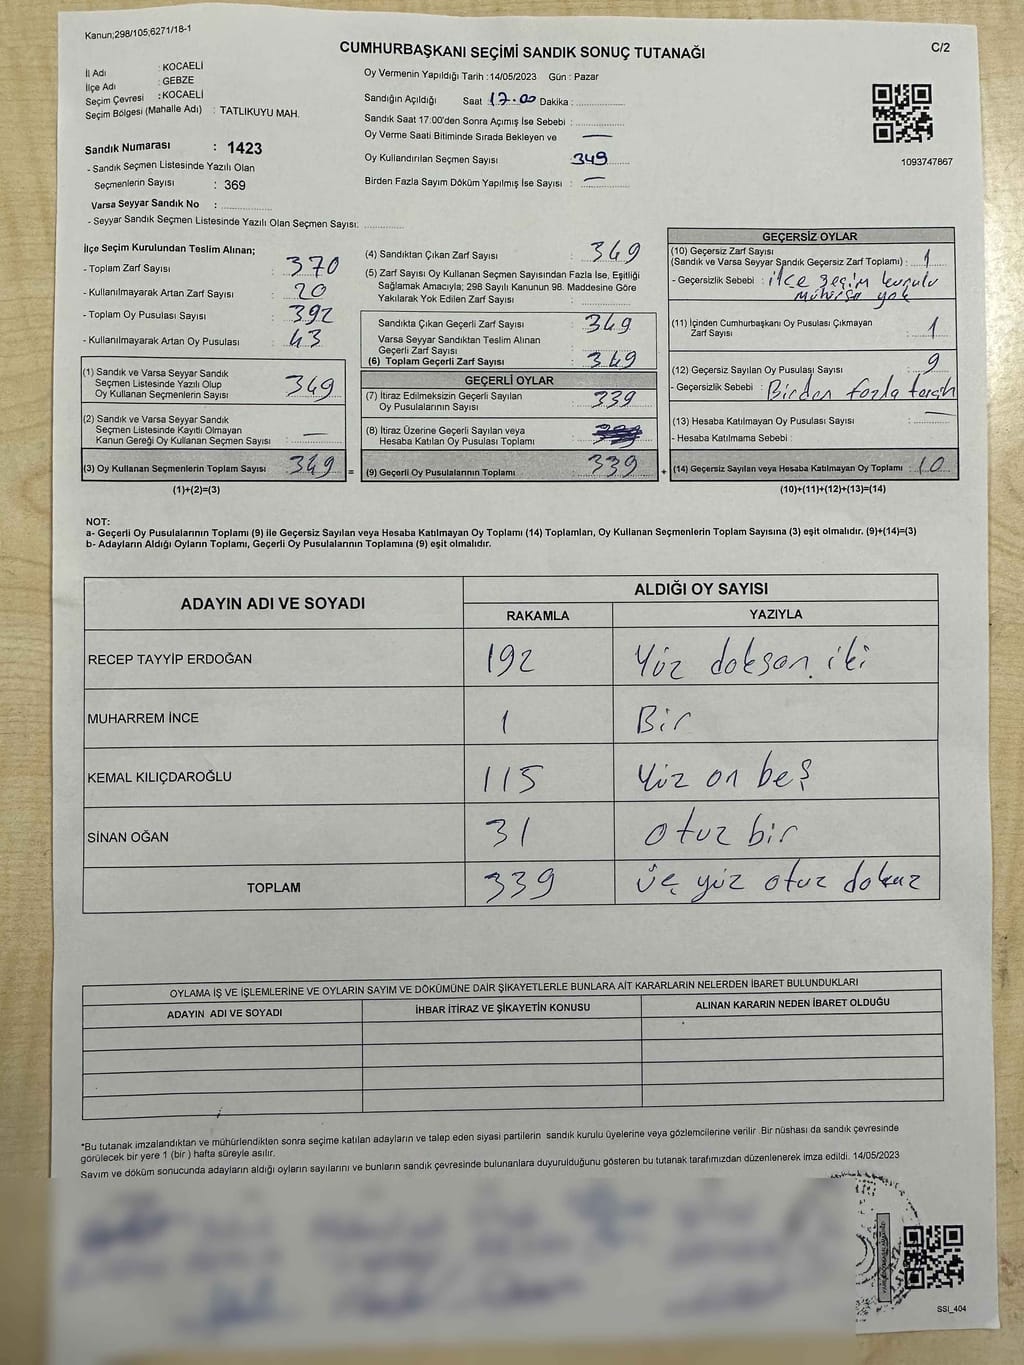 Kanun;298/105;6271/18-1
CUMHURBAŞKANI SEÇİMİ SANDIK SONUÇ TUTANAĞI
C/2
İl Adı : KOCAELİ
İlçe Adı : GEBZE
Seçim Çevresi : KOCAELİ
Seçim Bölgesi (Mahalle Adı) : TATLIKUYU MAH.
Sandık Numarası : 1423
- Sandık Seçmen Listesinde Yazılı Olan
Seçmenlerin Sayısı : 369
Varsa Seyyar Sandık No :
- Seyyar Sandık Seçmen Listesinde Yazılı Olan Seçmen Sayısı:
Oy Vermenin Yapıldığı Tarih : 14/05/2023 Gün : Pazar
Sandığın Açıldığı Saat 17.00 Dakika :
Sandık Saat 17:00'den Sonra Açımış İse Sebebi :
Oy Verme Saati Bitiminde Sırada Bekleyen ve —
Oy Kullandırılan Seçmen Sayısı 349
Birden Fazla Sayım Döküm Yapılmış İse Sayısı : —
1093747867
İlçe Seçim Kurulundan Teslim Alınan;
- Toplam Zarf Sayısı : 370
- Kullanılmayarak Artan Zarf Sayısı : 20
- Toplam Oy Pusulası Sayısı : 392
- Kullanılmayarak Artan Oy Pusulası : 43
(1) Sandık ve Varsa Seyyar Sandık
Seçmen Listesinde Yazılı Olup
Oy Kullanan Seçmenlerin Sayısı : 349
(2) Sandık ve Varsa Seyyar Sandık
Seçmen Listesinde Kayıtlı Olmayan
Kanun Gereği Oy Kullanan Seçmen Sayısı : —
(3) Oy Kullanan Seçmenlerin Toplam Sayısı : 349
(1)+(2)=(3)
=
(4) Sandıktan Çıkan Zarf Sayısı : 349
(5) Zarf Sayısı Oy Kullanan Seçmen Sayısından Fazla İse, Eşitliği
Sağlamak Amacıyla; 298 Sayılı Kanunun 98. Maddesine Göre
Yakılarak Yok Edilen Zarf Sayısı :
Sandıkta Çıkan Geçerli Zarf Sayısı : 349
Varsa Seyyar Sandıktan Teslim Alınan
Geçerli Zarf Sayısı :
(6) Toplam Geçerli Zarf Sayısı : 349
GEÇERLİ OYLAR
(7) İtiraz Edilmeksizin Geçerli Sayılan
Oy Pusulalarının Sayısı : 339
(8) İtiraz Üzerine Geçerli Sayılan veya
Hesaba Katılan Oy Pusulası Toplamı :
(9) Geçerli Oy Pusulalarının Toplamı : 339
+
GEÇERSİZ OYLAR
(10) Geçersiz Zarf Sayısı
(Sandık ve Varsa Seyyar Sandık Geçersiz Zarf Toplamı) : 1
- Geçersizlik Sebebi : ilçe seçim kurulu
mührü yok
(11) İçinden Cumhurbaşkanı Oy Pusulası Çıkmayan
Zarf Sayısı : 1
(12) Geçersiz Sayılan Oy Pusulası Sayısı : 9
- Geçersizlik Sebebi : Birden fazla tercih
(13) Hesaba Katılmayan Oy Pusulası Sayısı : —
- Hesaba Katılmama Sebebi :
(14) Geçersiz Sayılan veya Hesaba Katılmayan Oy Toplamı : 10
(10)+(11)+(12)+(13)=(14)
NOT:
a- Geçerli Oy Pusulalarının Toplamı (9) ile Geçersiz Sayılan veya Hesaba Katılmayan Oy Toplamı (14) Toplamları, Oy Kullanan Seçmenlerin Toplam Sayısına (3) eşit olmalıdır. (9)+(14)=(3)
b- Adayların Aldığı Oyların Toplamı, Geçerli Oy Pusulalarının Toplamına (9) eşit olmalıdır.
ADAYIN ADI VE SOYADI
ALDIĞI OY SAYISI
RAKAMLA YAZIYLA
RECEP TAYYİP ERDOĞAN 192 Yüz doksan iki
MUHARREM İNCE 1 Bir
KEMAL KILIÇDAROĞLU 115 Yüz on beş
SİNAN OĞAN 31 Otuz bir
TOPLAM 339 üç yüz otuz dokuz
OYLAMA İŞ VE İŞLEMLERİNE VE OYLARIN SAYIM VE DÖKÜMÜNE DAİR ŞİKAYETLERLE BUNLARA AİT KARARLARIN NELERDEN İBARET BULUNDUKLARI
ADAYIN ADI VE SOYADI İHBAR İTİRAZ VE ŞİKAYETİN KONUSU ALINAN KARARIN NEDEN İBARET OLDUĞU
*Bu tutanak imzalandıktan ve mühürlendikten sonra seçime katılan adayların ve talep eden siyasi partilerin sandık kurulu üyelerine veya gözlemcilerine verilir .Bir nüshası da sandık çevresinde
görülecek bir yere 1 (bir ) hafta süreyle asılır.
Sayım ve döküm sonucunda adayların aldığı oyların sayılarını ve bunların sandık çevresinde bulunanlara duyurulduğunu gösteren bu tutanak tarafımızdan düzenlenerek imza edildi. 14/05/2023
SSI_404